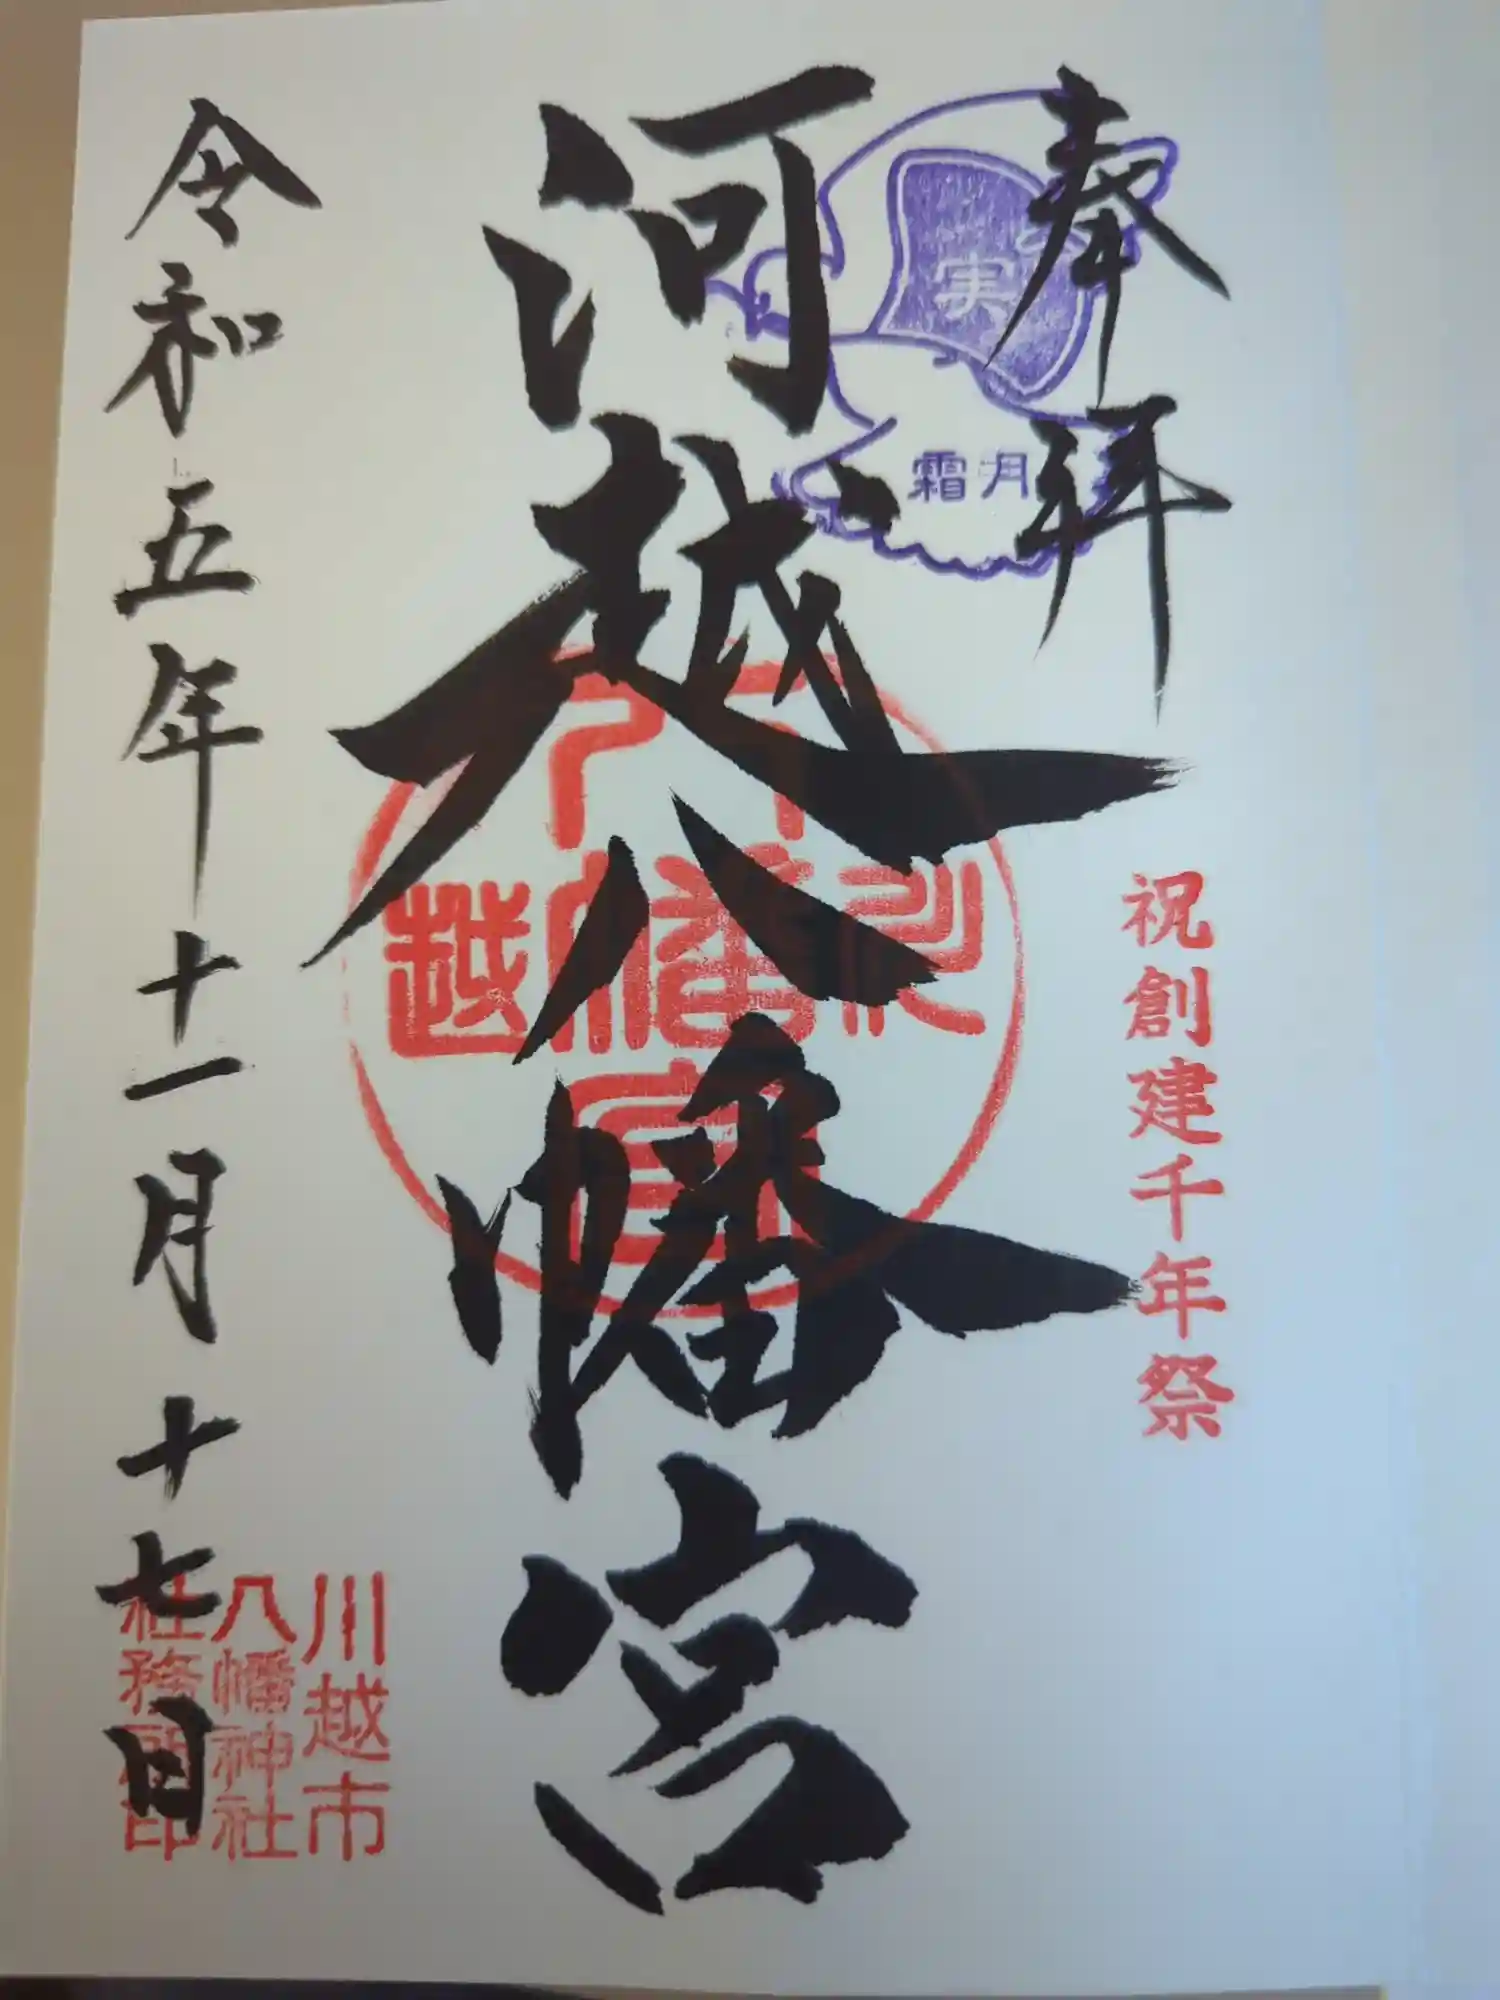 奉拝
実
霜月
祝創建千年祭
河越八幡宮
八幡宮
川越
令和五年十一月十七日
川越市
八幡神社
社務所印